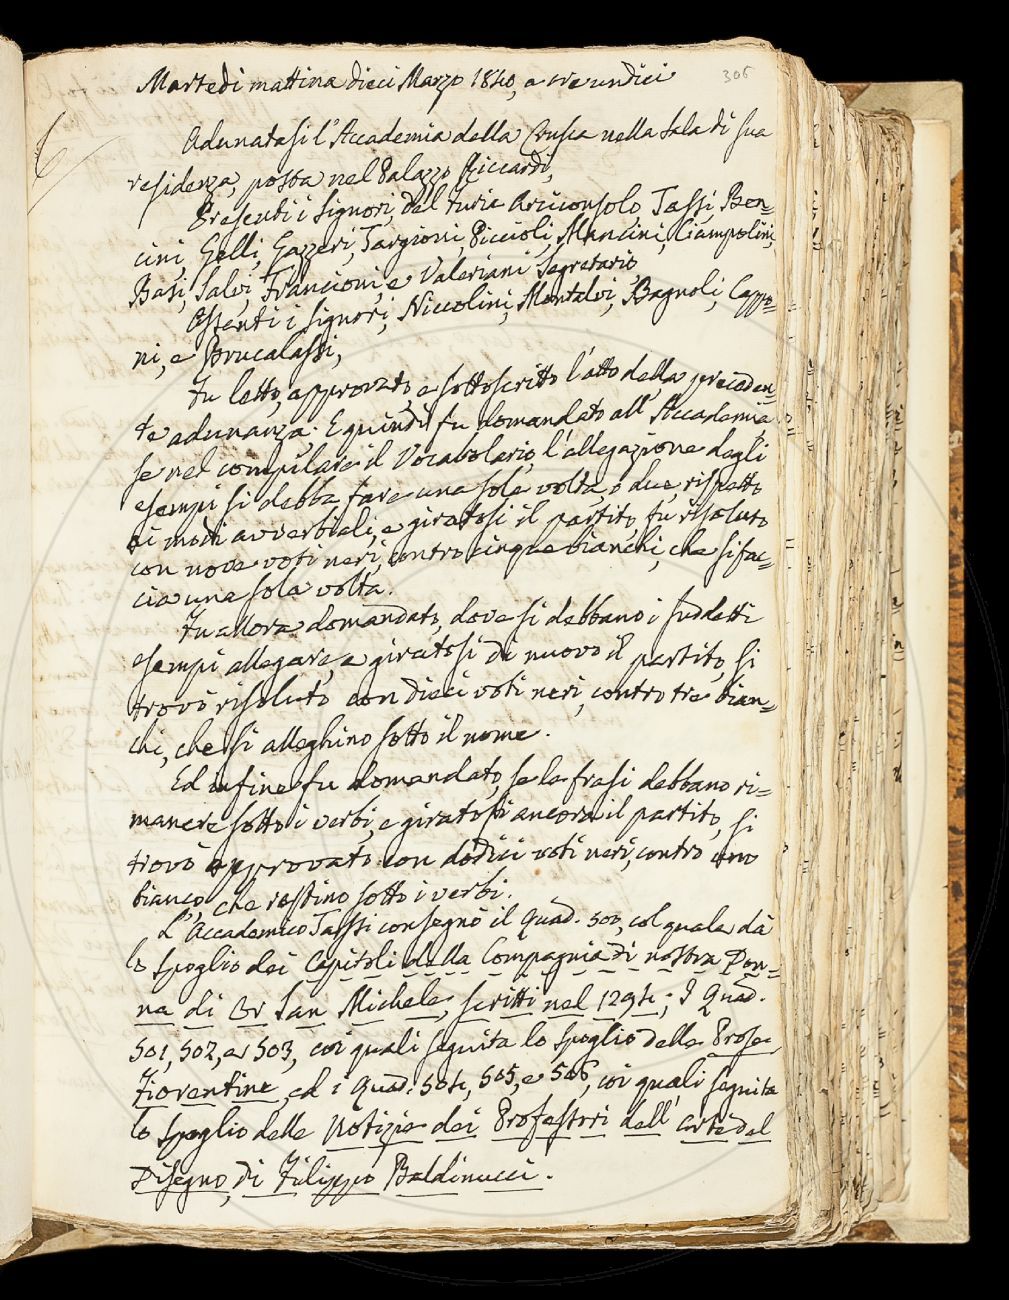 306
Martedi mattina dieci Marzo 1840, a ore undici
Adunatasi l'Accademia della Crusca nella Sala di sua
residenza, posta nel Palazzo Riccardi,
Presenti i Signori, Del Furia Arciconsolo, Tassi, Ben=
cini Gelli, Gazzeri, Targioni, Piccioli, Mancini, Ciampolini,
Basi, Salvi, Francioni, e Valeriani Segretario,
Assenti i Signori, Niccolini, Montalvi, Bagnoli, Cappo=
ni, e Brucalassi,
Fu letto, approvato, e sottoscritto l'atto della preceden=
te adunanza. E quindi fu domandato all'Accademia
se nel compilare il Vocabolario, l'allegazione degli
esempi si debba fare una sola volta, o due, rispetto
ai modi avverbiali, e giratosi il partito, fu risoluto
con nove voti neri, contro cinque bianchi, che si fac=
cia una sola volta.
Fu allora domandato, dove si debbano i suddetti
esempi allegare, e giratosi di nuovo il partito, si
trovò risoluto con dieci voti neri, contro tre bian=
chi, che si alleghino sotto il nome.
Ed infine fu domandato, se le frasi debbano ri=
manere sotto i verbi, e giratosi ancora il partito, si
trovò approvato con dodici voti neri, contro uno
bianco, che restino sotto i verbi.
L'Accademico Tassi consegnò il Quad. 500, col quale dà
lo spoglio dei Capitoli della Compagnia di nostra Don=
na di Or San Michele, scritti nel 1294; I Quad.
501, 502, e 503, coi quali seguita lo spoglio delle Prose
Fiorentine, ed i Quad. 504, 505, e 506, coi quali seguita
lo spoglio delle Notizie dei Professori dell'arte del
Disegno, di Filippo Baldinucci.